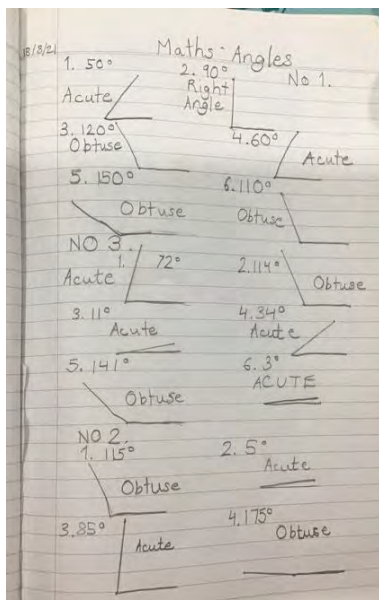 18/8/21
Maths - Angles
No 1.
1. 50°
Acute
2. 90°
Right
Angle
3. 120°
Obtuse
4. 60°
Acute
5. 150°
Obtuse
6. 110°
Obtuse
NO 3.
1. 72°
Acute
2. 114°
Obtuse
3. 11°
Acute
4. 34°
Acute
5. 141°
Obtuse
6. 3°
ACUTE
NO 2.
1. 115°
Obtuse
2. 5°
Acute
3. 85°
Acute
4. 175°
Obtuse